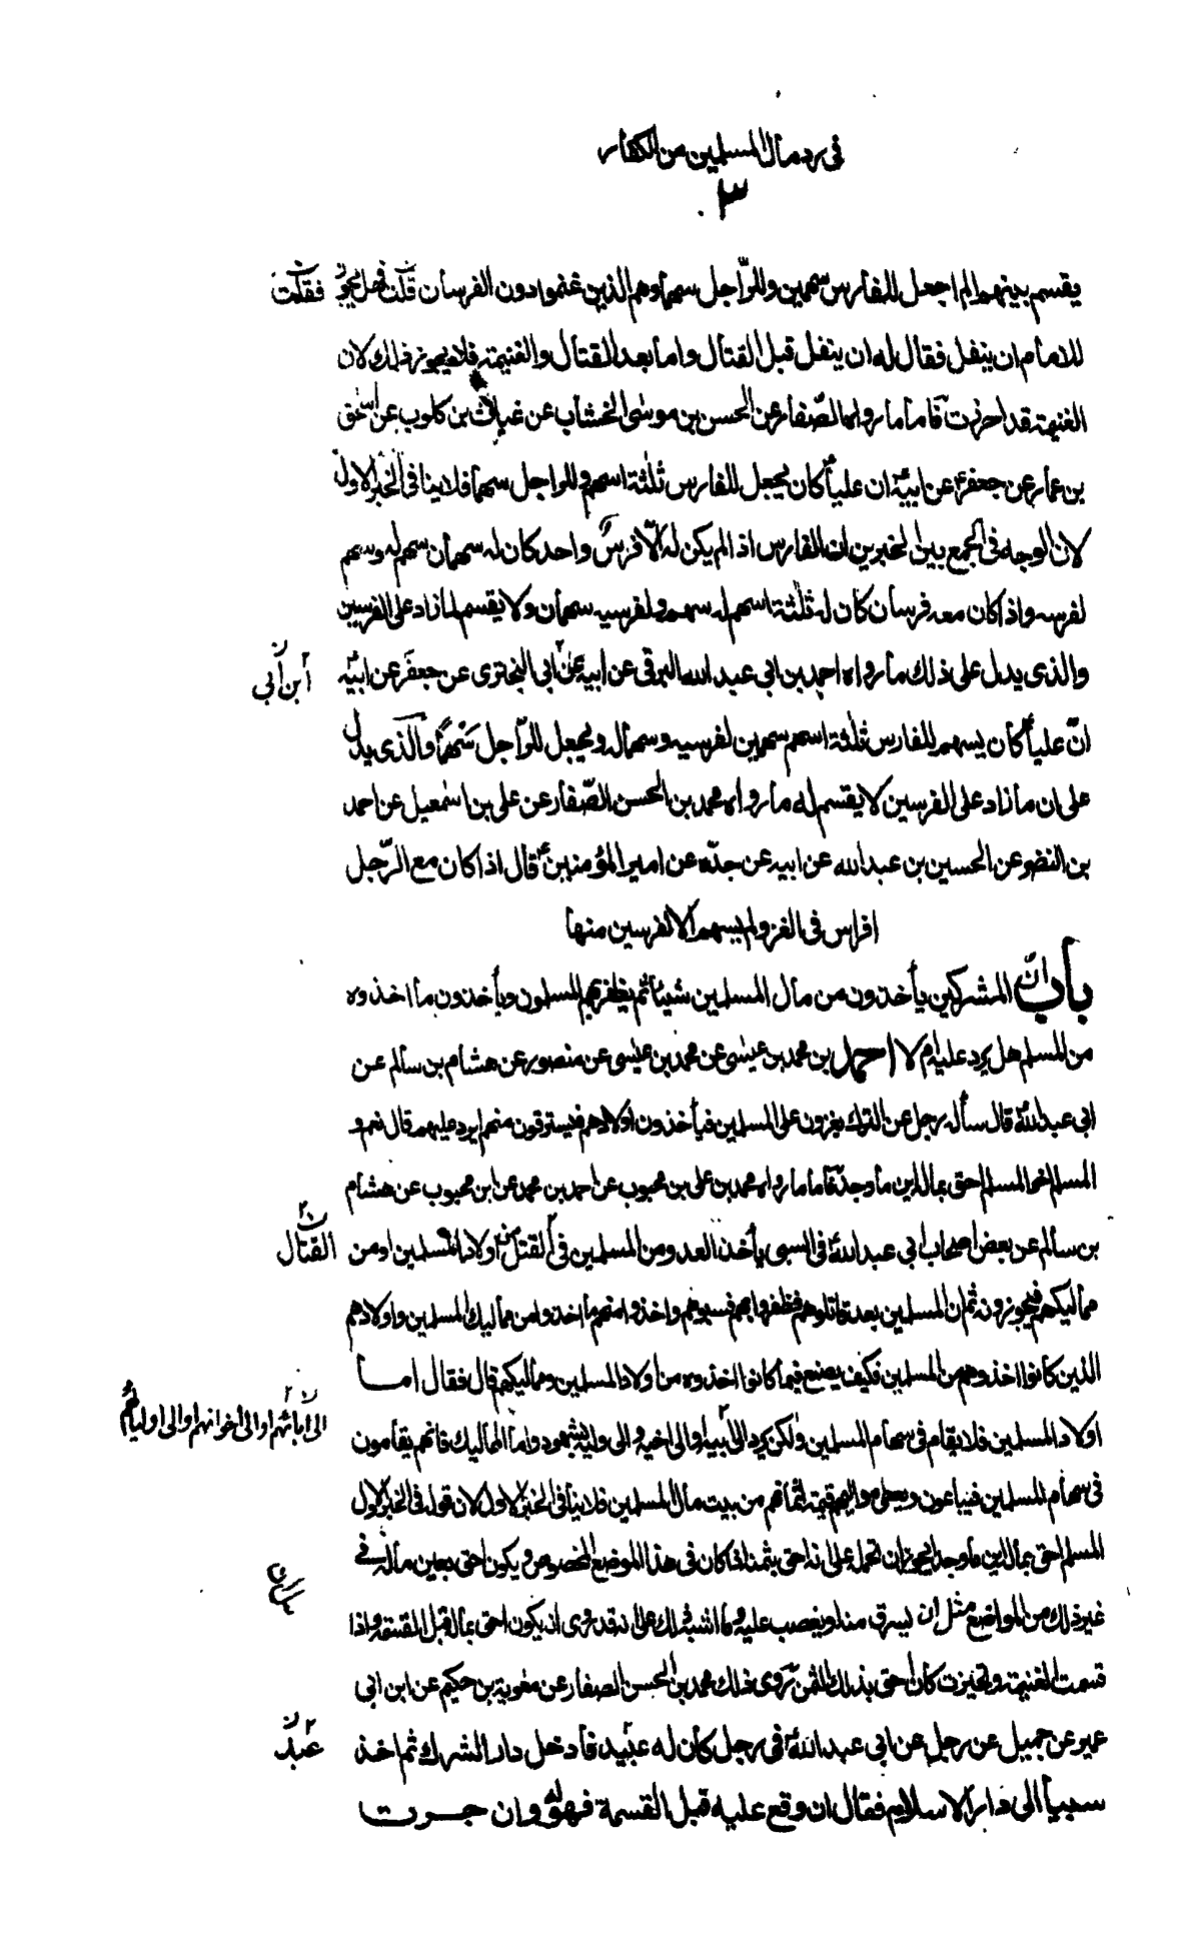 في رد مال المسلمين من الكفار
٣
يقسم بينهم الم اجعل للفارس سهمين وللرّاجل سهما وهم الذين غنموا دون الفرسان قلت فهل يجوز فقلت
للامام ان ينفل فقال له ان ينفل قبل القتال واما بعد القتال والغنيمة فلا يجوز ذلك لان
الغنيمة قد احرزت فاما ما رواه الصّفار عن الحسن بن موسى الخشاب عن غياث بن كلوب عن اسحق
بن عمار عن جعفر عن ابيه ان عليا كان يجعل للفارس ثلثة اسهم وللراجل سهما فلا ينافي الخبر الاول
لان الوجه في الجمع بين الخبرين ان الفارس اذا لم يكن له الّا فرس واحد كان له سهمان سهم له وسهم
لفرسه واذا كان معه فرسان كان له ثلثة اسهم له سهم ولفرسيه سهمان ولا يقسم لما زاد على الفرسين
والذي يدل على ذلك ما رواه احمد بن ابي عبد الله البرقي عن ابيه عن ابي البختري عن جعفر عن ابيه
ابن ابي
انّ عليا كان يسهم للفارس ثلثة اسهم سهمين لفرسيه وسهما له ويجعل للرّاجل سَهْمًا والّذي يدل
على ان ما زاد على الفرسين لا يقسم له ما رواه محمد بن الحسن الصّفار عن علي بن اسمعيل عن احمد
بن النضر عن الحسين بن عبد الله عن ابيه عن جدّه عن امير المؤمنين قال اذا كان مع الرّجل
افراس في الغزو لم يسهم الا لفرسين منها
باب انّ المشركين يأخذون من مال المسلمين شيئا ثم يظفر بهم المسلمون ويأخذون ما اخذوه
من المسلم هل يرد عليه ام لا احمد بن محمد بن عيسى عن محمد بن عيسى عن منصور عن هشام بن سالم عن
ابي عبد الله قال سأله رجل عن الترك يغزون على المسلمين فيأخذون اولادهم فيسترقون منهم ايرد عليهم قال نعم و
المسلم اخو المسلم المسلم احق بماله اين ما وجده فاما ما رواه محمد بن علي بن محبوب عن احمد بن محمد عن ابن محبوب عن هشام
بن سالم عن بعض اصحاب ابي عبد الله في السبي يأخذ العدو من المسلمين في القتل من اولاد المسلمين او من
القتال
مماليكهم فيجوزونه ثم ان المسلمين بعد قاتلوهم فظفروا بهم فسبوهم واخذوا منهم ما اخذوا من مماليك المسلمين واولادهم
الذين كانوا اخذوهم من المسلمين فكيف يصنع فيما كانوا اخذوه من اولاد المسلمين ومماليكهم قال فقال اما
اولاد المسلمين فلا يقام في سهام المسلمين ولكن يرد الى ابيه او الى اخيه والى وليه بشهود واما المماليك فانهم يقامون
الى آبائهم او الى اخوانهم او الى اوليائهم
في سهام المسلمين فيباعون ويعطى مواليهم قيمة اثمانهم من بيت مال المسلمين فلا ينافي الخبر الاول لان قوله في الخبر الاول
المسلم احق بماله اين ما وجده يجوز ان نحمله على انه احق بثمنه اذا كان في هذا الموضع المخصوص ويكون احق بعين ماله في
غير ذلك من المواضع مثل ان يسرق منه او يغصب عليه وما اشبه ذلك على انه قد روي ان يكون احق بماله قبل القسمة واذا
قسمت الغنيمة وتحيزت كان احق بذلك بالثمن روى ذلك محمد بن الحسن الصفار عن معوية بن حكيم عن ابن ابي
عمير عن جميل عن رجل عن ابي عبد الله في رجل كان له عبيد فادخل دار الشرك ثم اخذ
عبد
سبيا الى دار الاسلام فقال ان وقع عليه قبل القسمة فهو له وان جرت